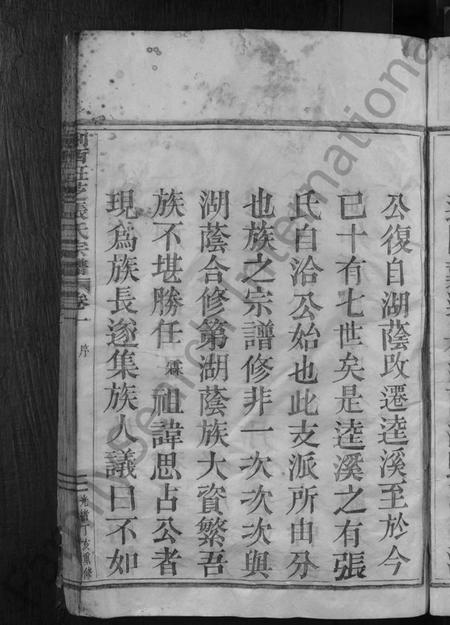 公復自湖蔭改遷逵溪至於今
已十有七世矣是逵溪之有張
氏自洽公始也此支派所由分
也族之宗譜修非一次次次與
湖蔭合修第湖蔭族大資繁吾
族不堪勝任霖祖諱思占公者
現為族長遂集族人議曰不如
張氏宗譜 卷一 序
亥重修
FamilySearch International